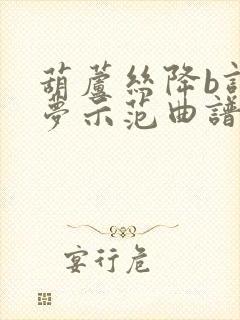 葫蘆絲降b調
夢示范曲譜
宴行危